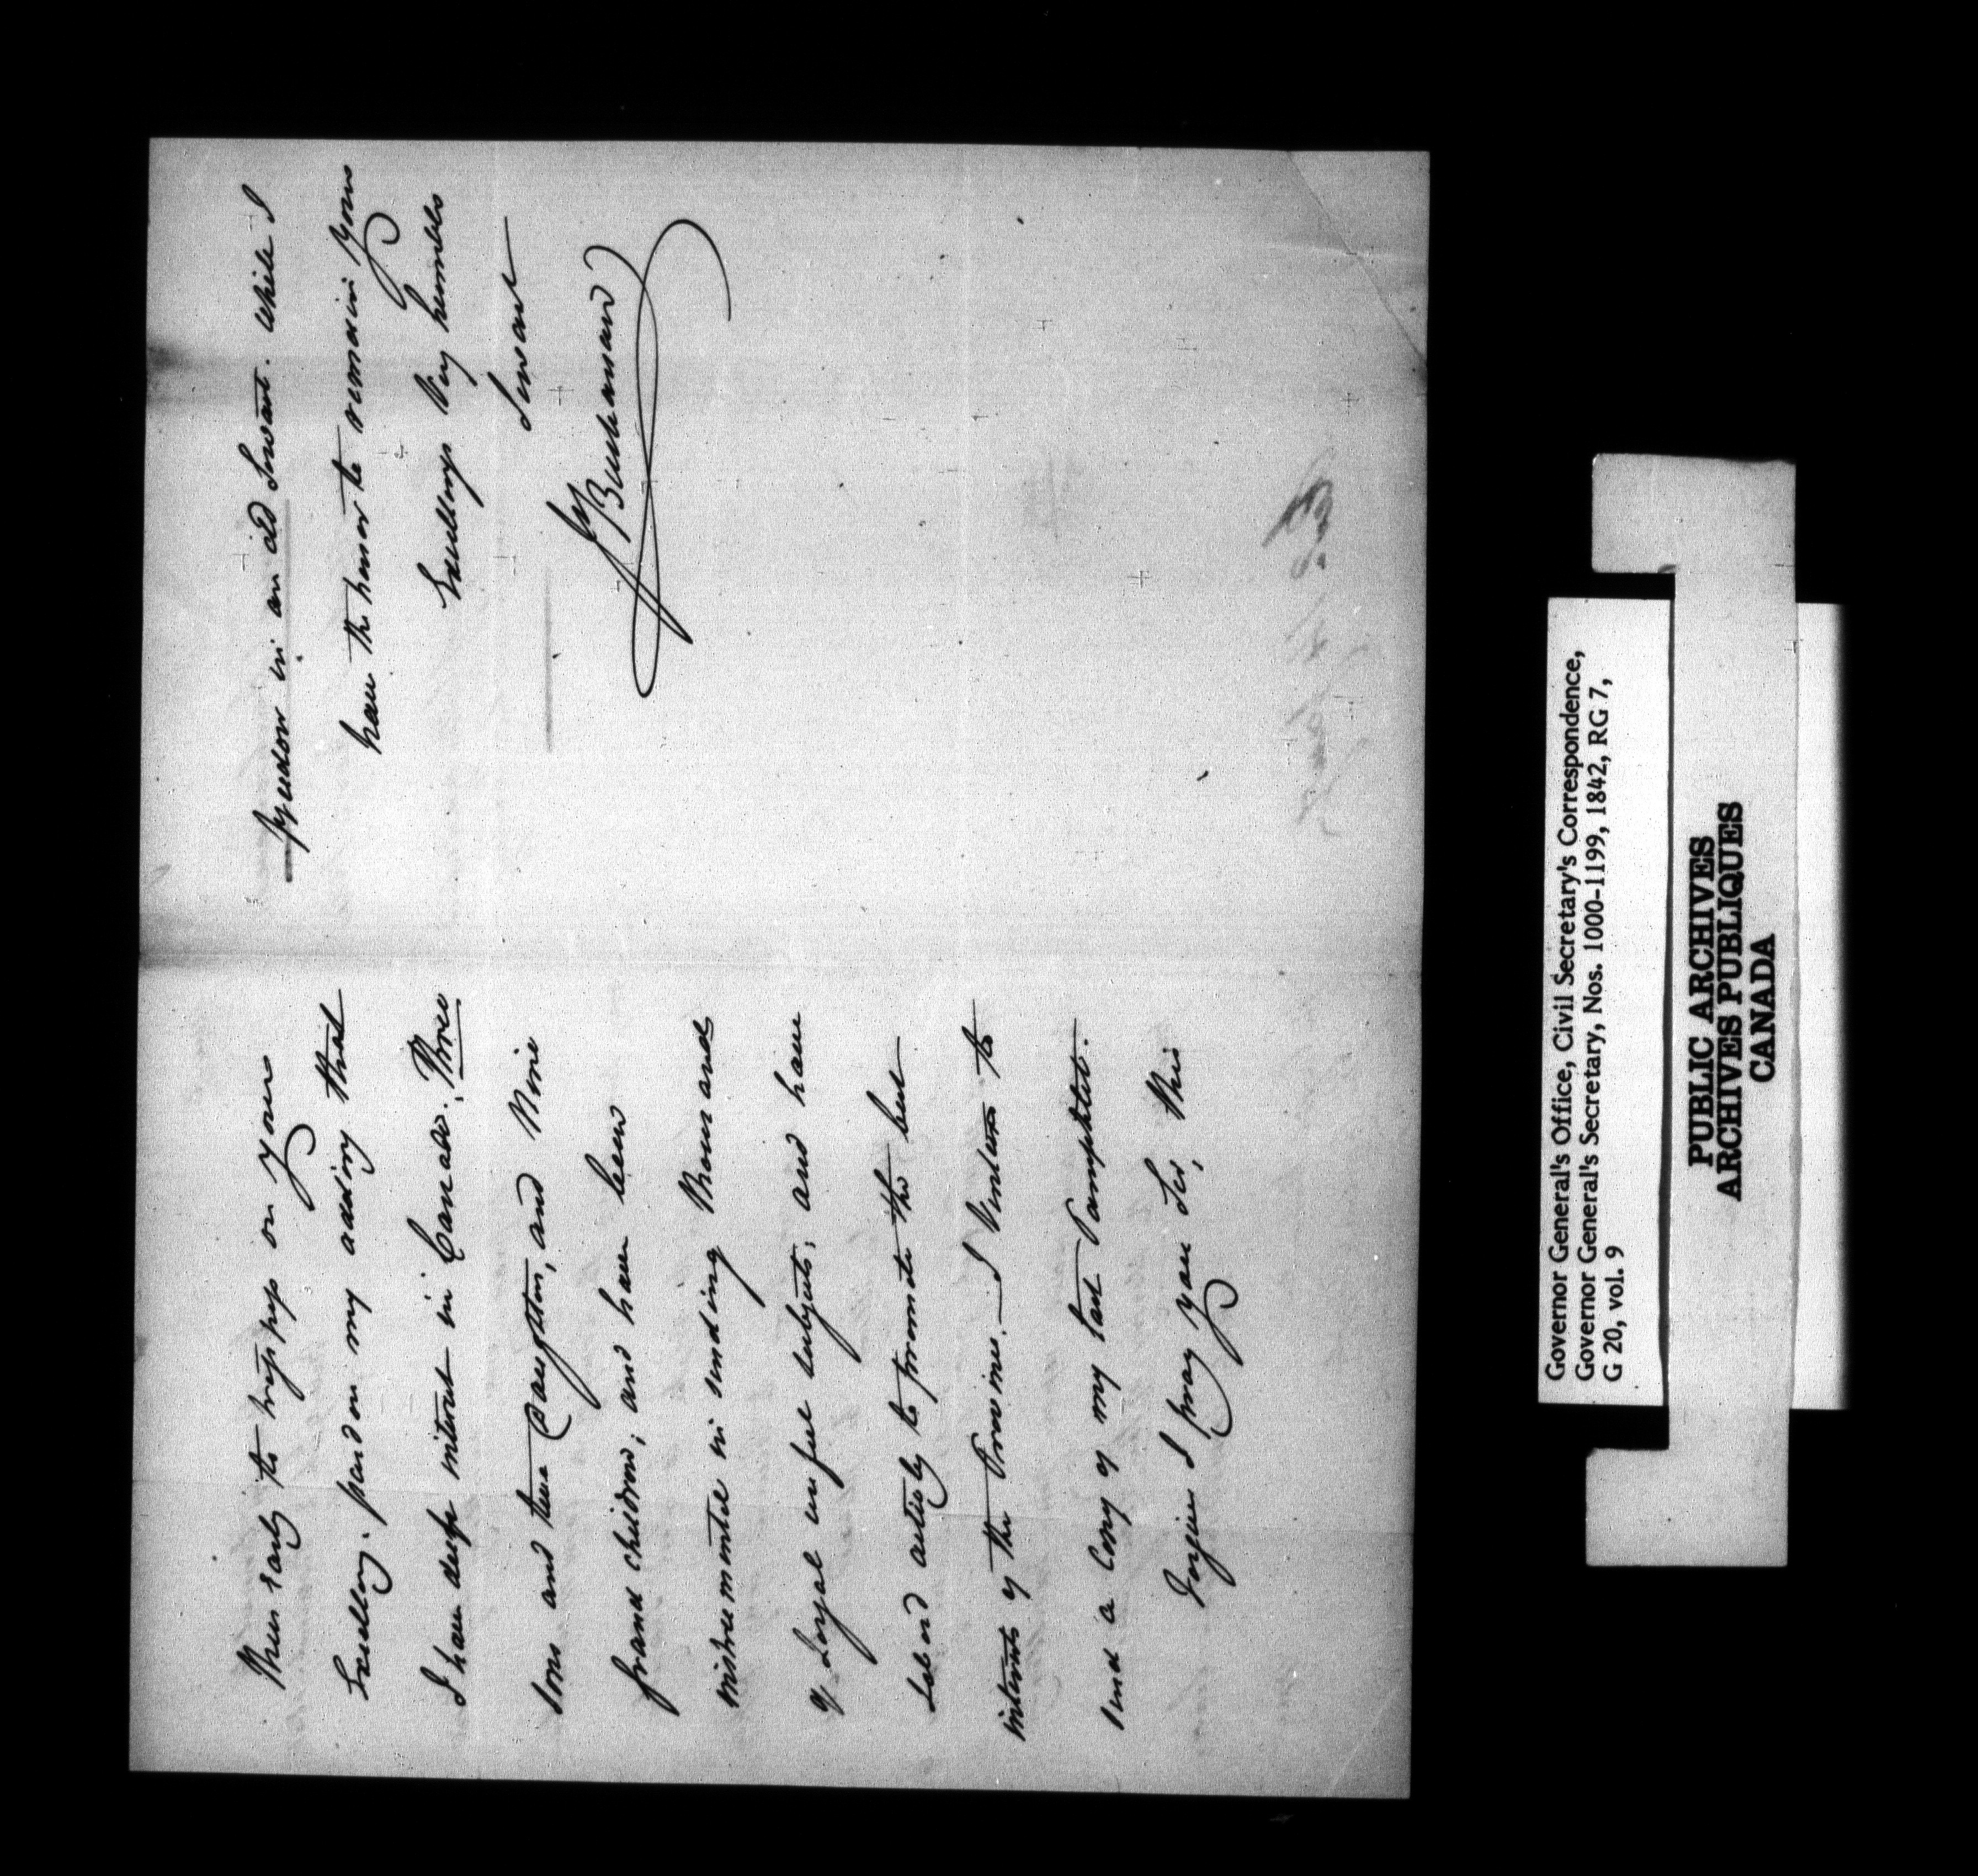 thus early to tresspass on your
Excellency. pardon my adding that
I have deep interest in Canada. Three
sons and two Daughters, and Nine
grand children; and have been
instrumental in sending thousands
of Loyal useful subjects; and have
labord actively to promote the best
interests of the Province. — I venture to
send a Copy of my last Pamphlet.
Forgive I pray you Sir, this
freedom in an old Servant. While I
have the honor to remain your
Excellencys Very humble
Servant
J Buchanan
Governor General's Office, Civil Secretary's Correspondence,
Governor General's Secretary, Nos. 1000-1199, 1842, RG 7,
G 20, vol. 9
PUBLIC ARCHIVES
ARCHIVES PUBLIQUES
CANADA